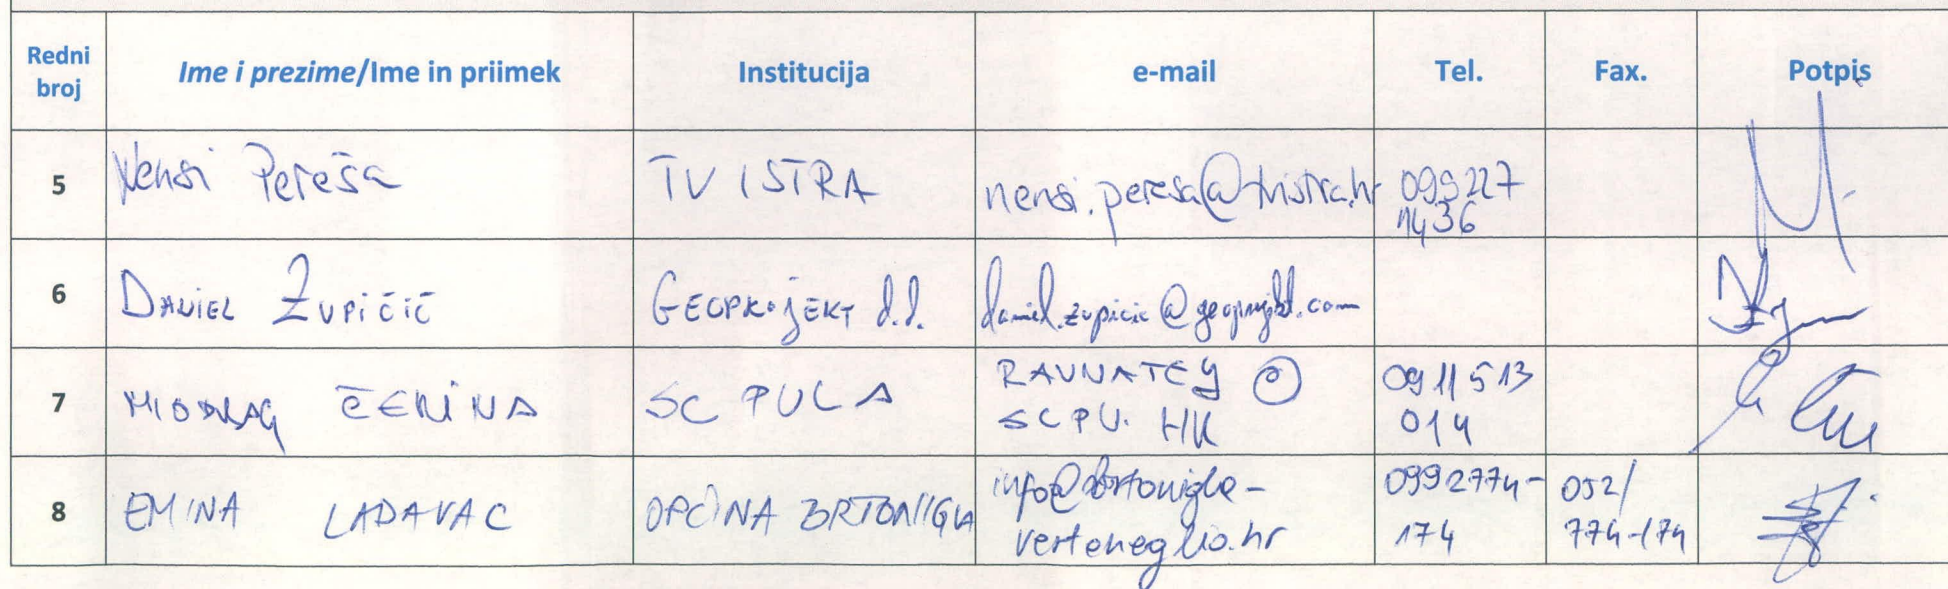 Redni broj Ime i prezime/Ime in priimek Institucija e-mail Tel. Fax. Potpis
5 Nensi Pereša TV ISTRA nensi.peresa@tvistra.hr 099227
1436
6 DANIEL ŽUPIČIĆ GEOPROJEKT d.d. daniel.zupicic@geoprojekt.com
7 MIODRAG ČERINA SC PULA RAVNATELJ @ 0911513
SCPU. HR 014
8 EMINA LADAVAC OPĆINA BRTONIGLA info@brtonigla- 0992774- 052/
verteneglio.hr 174 774-174